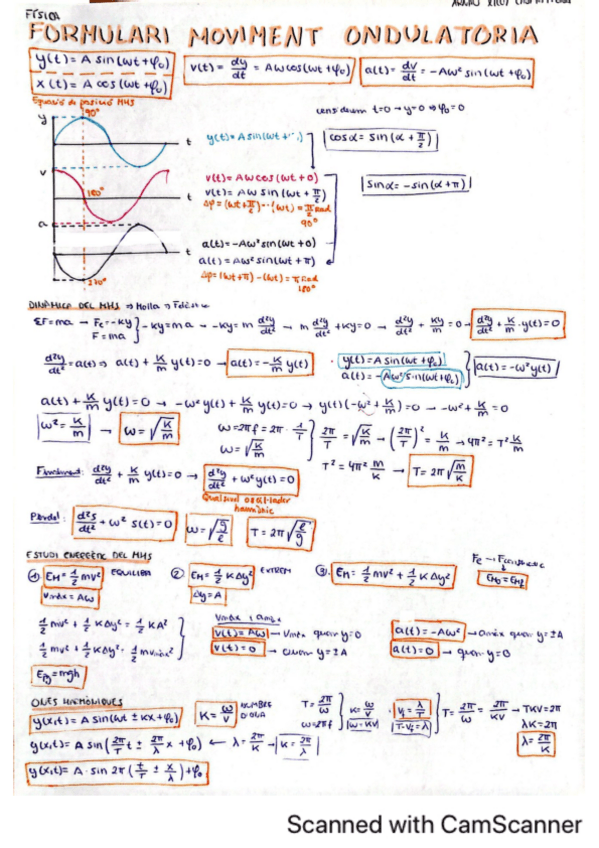 FÍSICA
FORMULARI MOVIMENT ONDULATORIA
y(t) = A sin(ωt+φ₀)
x(t) = A cos(ωt+φ₀)
v(t) = dy/dt = Aω cos(ωt+φ₀)
a(t) = dv/dt = -Aω² sin(ωt+φ₀)
Equació de posició MHS
considerem t=0 → y=0 ⇒ φ₀=0
y
90°
t
y(t) = A sin(ωt
cosα = sin(α + π/2)
v
180°
t
v(t) = Aω cos(ωt + 0)
v(t) = Aω sin(ωt + π/2)
Δφ = (ωt + π/2) - (ωt) = π/2 rad
90°
sinα = -sin(α+π)
a
t
270°
a(t) = -Aω² sin(ωt + 0)
a(t) = Aω² sin(ωt + π)
Δφ = (ωt+π) - (ωt) = π rad
180°
DINÀMICA DEL MHS ⇒ Molla ⇒
ΣF = ma → Fe = -ky
F = ma
-ky = ma → -ky = m d²y/dt² → m d²y/dt² + ky = 0 → d²y/dt² + ky/m = 0 → d²y/dt² + k/m · y(t) = 0
d²y/dt² = a(t) ⇒ a(t) + k/m y(t) = 0 → a(t) = -k/m y(t)
y(t) = A sin(ωt+φ₀)
a(t) = -Aω² sin(ωt+φ₀)
a(t) = -ω² y(t)
a(t) + k/m y(t) = 0 → -ω² y(t) + k/m y(t) = 0 → y(t)(-ω² + k/m) = 0 → -ω² + k/m = 0
ω² = k/m → ω = √k/m
ω = 2πf = 2π · 1/T
ω = √k/m
2π/T = √k/m → (2π/T)² = k/m → 4π² = T² · k/m
T² = 4π² m/k → T = 2π√m/k
Finalment: d²y/dt² + k/m y(t) = 0 → d²y/dt² + ω² y(t) = 0
Qualsevol oscil·lador harmònic
Pèndol: d²s/dt² + ω² s(t) = 0
ω = √g/ℓ
T = 2π√ℓ/g
ESTUDI ENERGÈTIC DEL MHS
① EM = 1/2 mv² EQUILIBRI
vmàx = Aω
② EM = 1/2 KΔy² EXTREM
Δy = A
③ EM = 1/2 mv² + 1/2 KΔy²
1/2 mv² + 1/2 KΔy² = 1/2 KA²
1/2 mv² + 1/2 KΔy² = 1/2 mvmàx²
Epg = mgh
Vmàx i amàx
v(t) = Aω → vmàx quan y=0
v(t) = 0 → quan y=±A
a(t) = -Aω² → amàx quan y=±A
a(t) = 0 → quan y=0
ONES HARMÒNIQUES
y(x,t) = A sin(ωt ± kx + φ₀)
K = ω/v NOMBRE D'ONA
T = 2π/ω
ω = 2πf
K = ω/v
ω = KV
Vf = λ/T
T·Vf = λ
T = 2π/ω = 2π/KV → TKV = 2π
λK = 2π
λ = 2π/K
y(x,t) = A sin(2π/T t ± 2π/λ x + φ₀) ← λ = 2π/K → K = 2π/λ
y(x,t) = A · sin 2π(t/T ± x/λ) + φ₀
Scanned with CamScanner